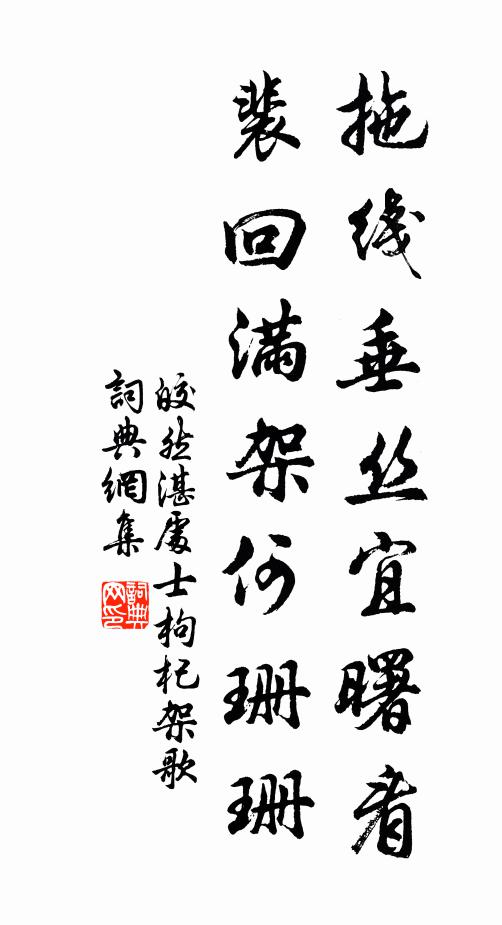 拖线垂丝宜曙看
裴回满架何珊珊
皎然湛處士枸杞架歌
詞典網集
詞典网印